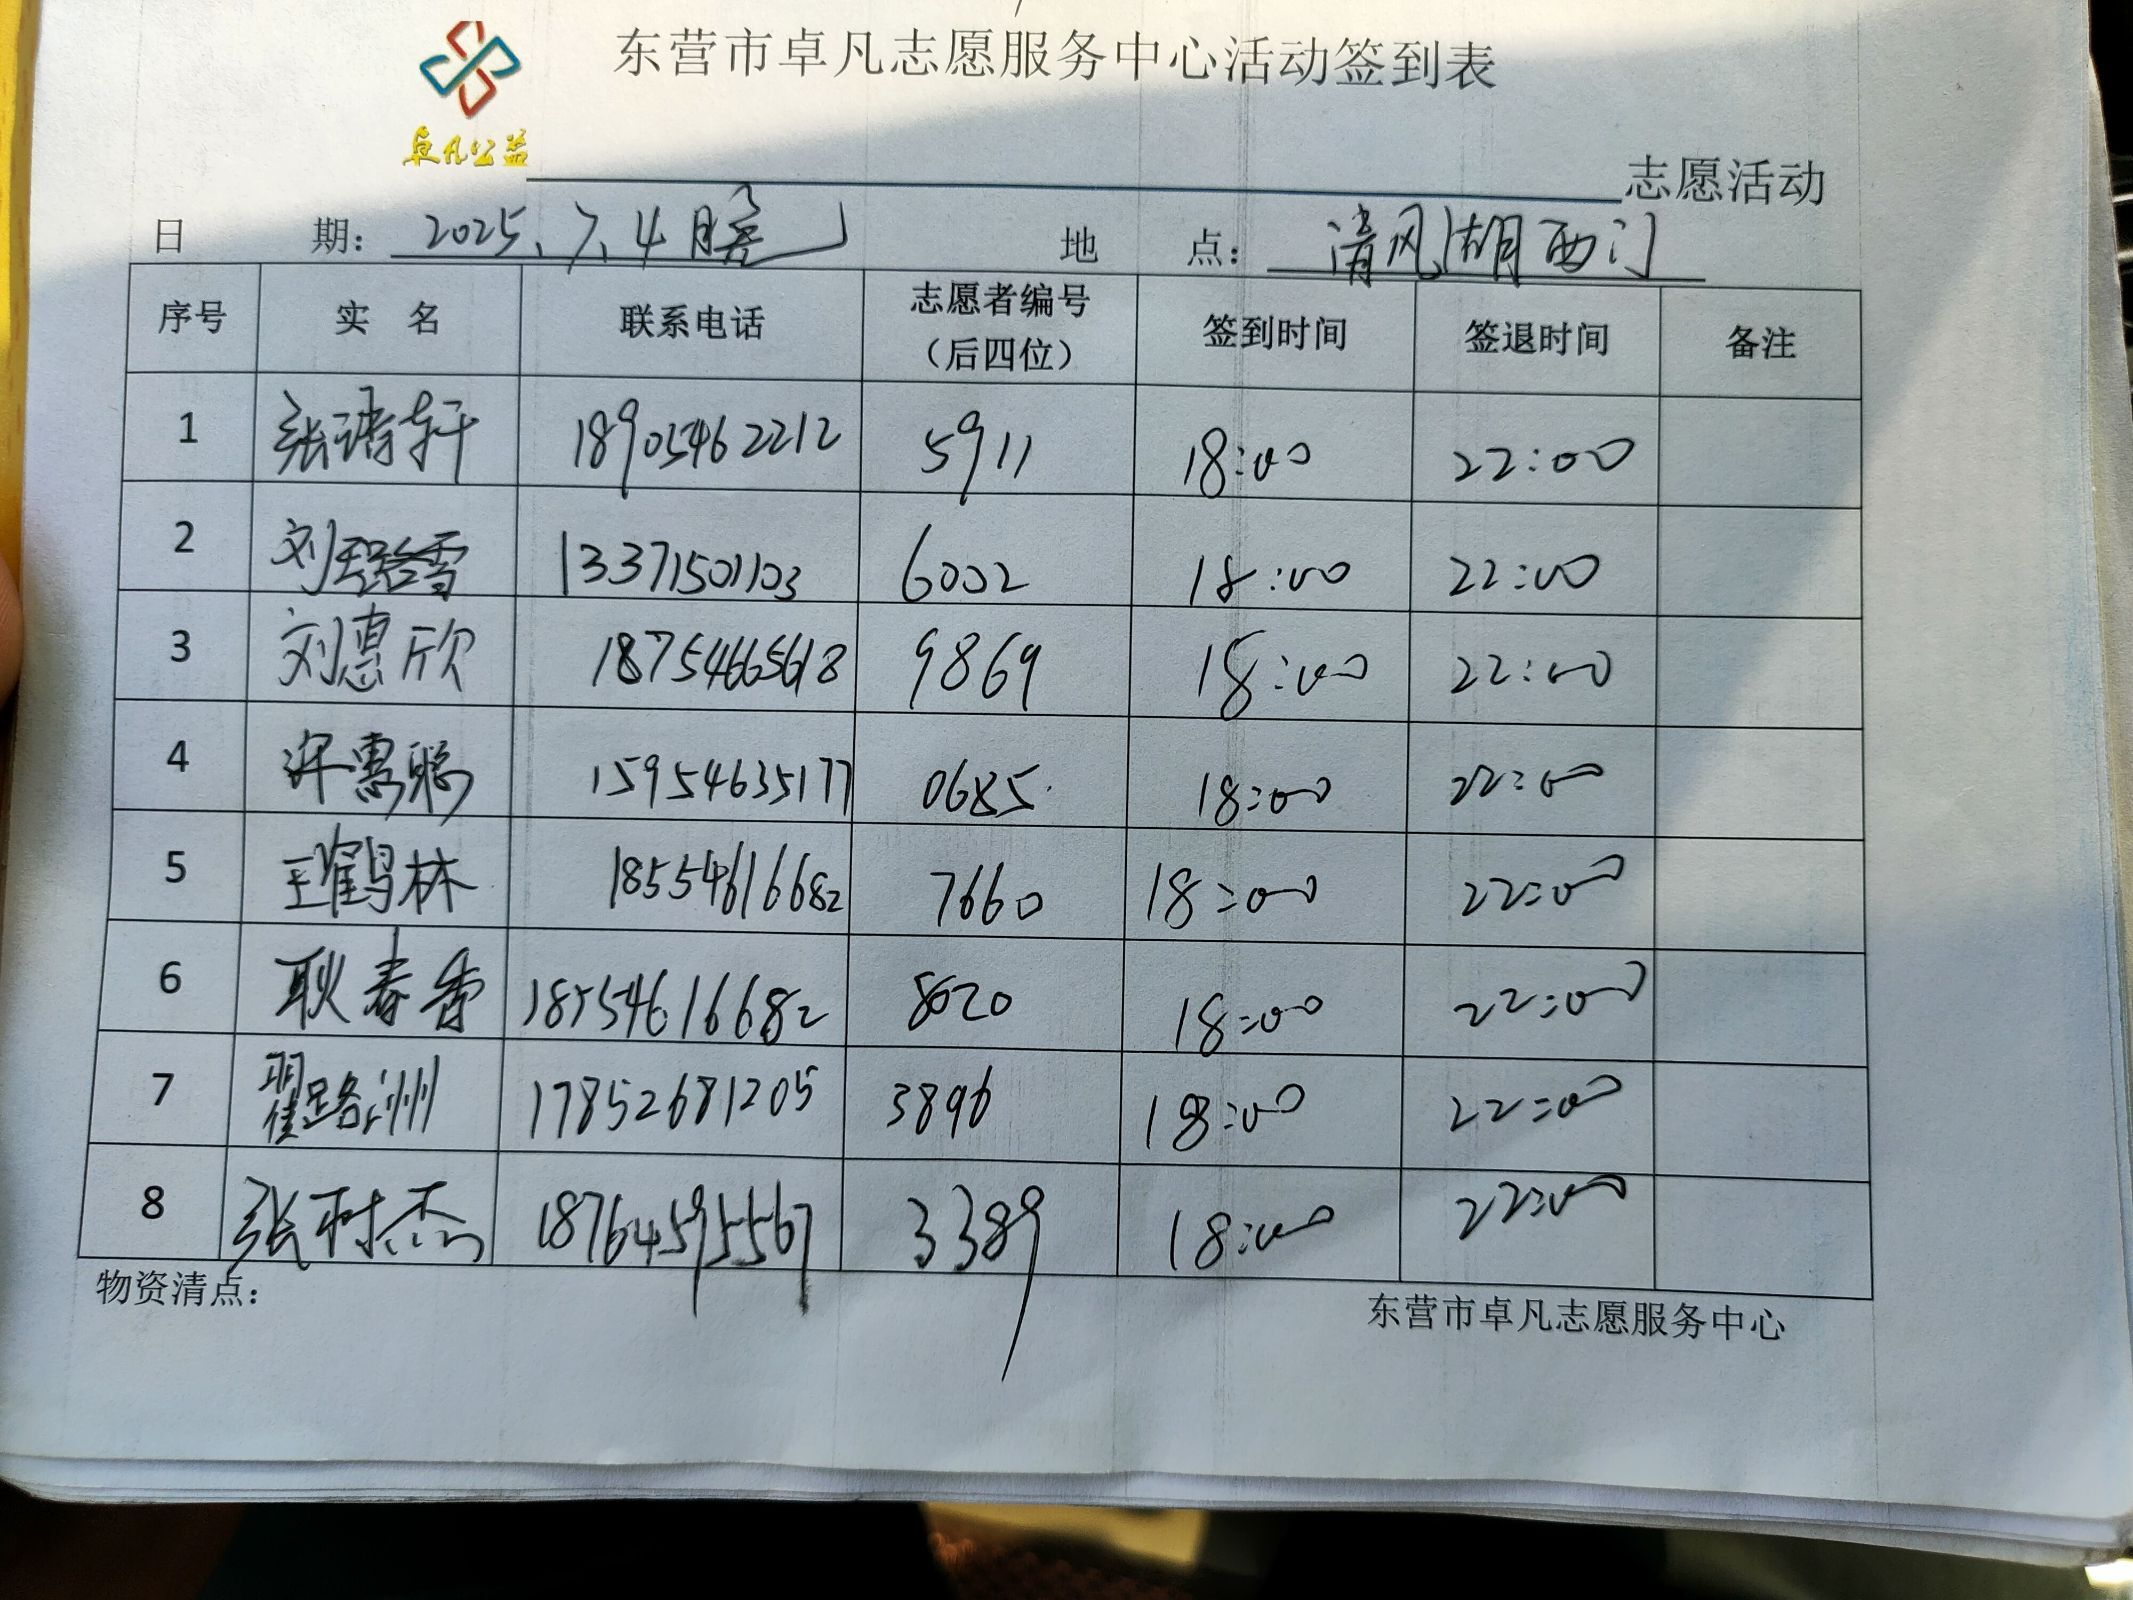 东营市卓凡志愿服务中心活动签到表
卓凡公益
志愿活动
日 期： 2025.7.4 晚 地 点： 清风湖西门
序号 实 名 联系电话 志愿者编号（后四位） 签到时间 签退时间 备注
1 张诸轩 18905462212 5911 18:00 22:00
2 刘璐雪 13371501103 6002 18:00 22:00
3 刘惠欣 18754665618 9869 18:00 22:00
4 许惠聪 15954635177 0685 18:00 22:00
5 王鹤林 18554616682 7660 18:00 22:00
6 耿春香 18554616682 8020 18:00 22:00
7 翟路洲 17852681205 3896 18:00 22:00
8 张树杰 18764595567 3389 18:00 22:00
物资清点：
东营市卓凡志愿服务中心